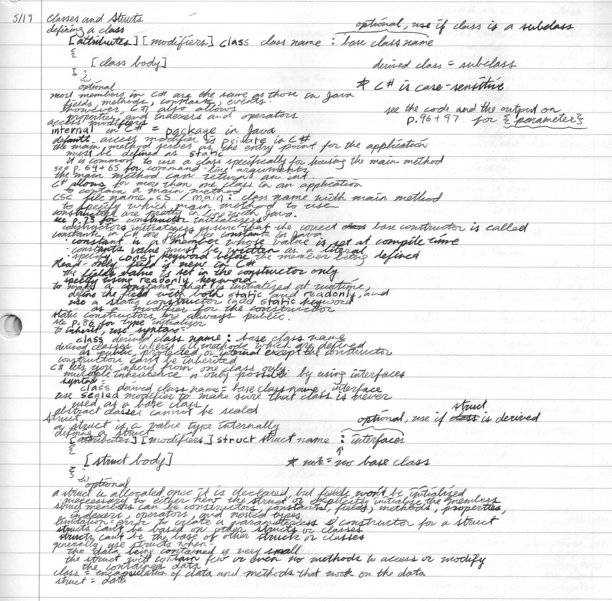 5/17 Classes and Structs
defining a class
optional, use if class is a subclass
[attributes] [modifiers] class class name : base class name
{
[class body]
derived class = subclass
}
;
optional
* C# is case-sensitive
most members in C# are the same as those in Java
fields, methods, constants, events.
however, C# also allows
properties, and indexers and operators
see the code and the output on
p. 96 + 97 for {parameter}
access modifiers
internal in C# = package in Java
default access modifier is private in C#
the main method serves as the entry point for the application
must be defined as static
it is common to use a class specifically for housing the main method
see p. 64 + 65 for command-line arguments
the main method can return an int.
C# allows for more than one class in an application
to contain a main method
csc file name.cs main: class name with main method
to specify which main method to use
constructors are pretty in line with Java.
see p. 73 for constructor initializers
constructors initializers ensure that the correct base constructor is called
constant in C# as constant in Java
constant is a member whose value is set at compile time
constants value must be written as a literal
specify const keyword before the member being defined
Read-only field is new in C#
the fields value is set in the constructor only
specify using readonly keyword
to make a constant that is initialized at runtime,
define the field with both static and readonly, and
use a static constructor (add static keyword
as a modifier for the constructor
static constructors are always public.
see p. 86 for type initializer
to inherit, use syntax =
class derived class name : base class name
derived classes inherit all methods which are defined
as public, protected, or internal except the constructor
constructors can't be inherited
C# lets you inherit from one class only
multiple inheritance is only possible by using interfaces
syntax =
class derived class name = base class name, interface
use sealed modifier to make sure that class is never
used as a base class
abstract classes cannot be sealed
struct
a struct is a value type internally
defining a struct
struct
optional, use if class is derived
[attributes] [modifiers] struct struct name : interfaces
{
[struct body]
* note = no base class
}
;
optional
a struct is allocated once it is declared, but fields won't be initialized
necessary to either new the struct or explicitly initialize the members
struct members can be constructors, constants, fields, methods, properties,
indexers, operators, and nested types
limitation = error to create a parameterless constructor for a struct
structs can't be based on other structs or classes
structs can't be the base of other structs or classes
generally, use structs when:
the data being contained is very small
the struct will contain few or even no methods to access or modify
the contained data
class = encapsulation of data and methods that work on the data
struct = data